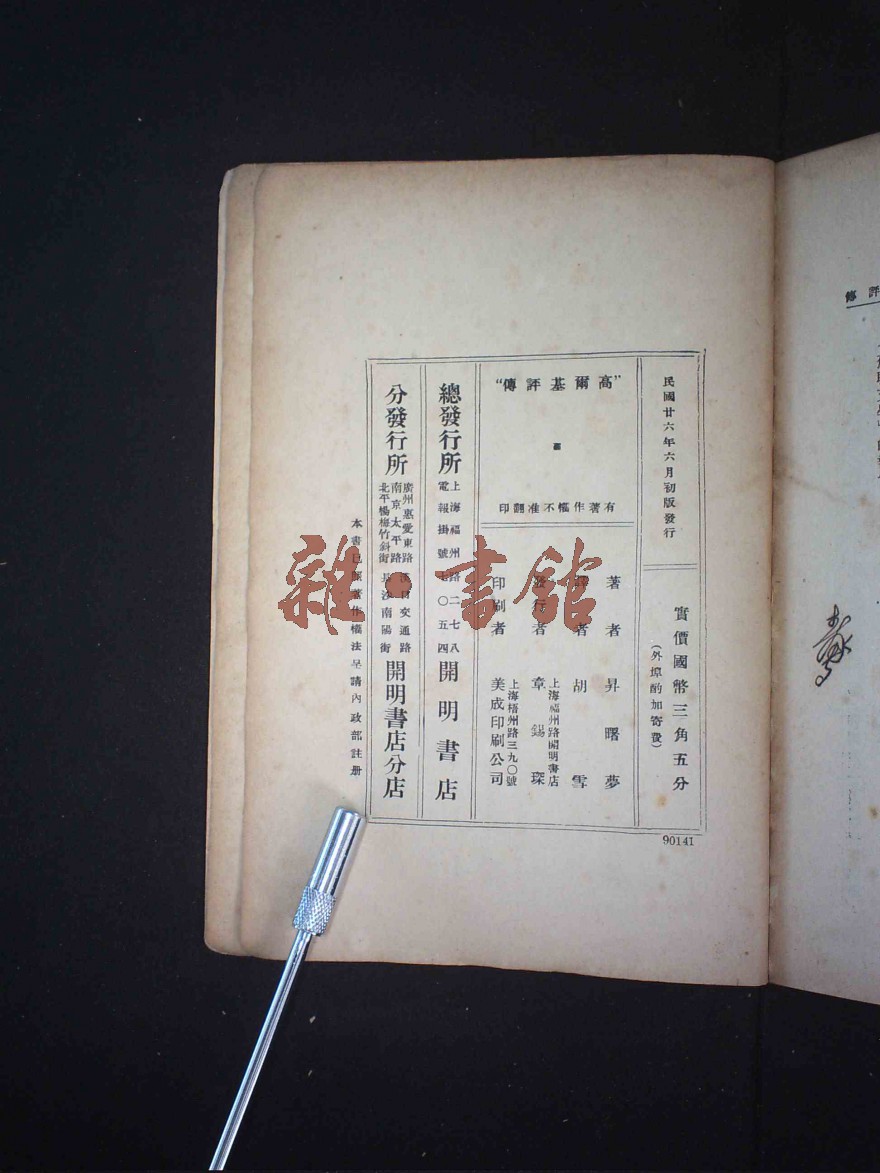 民國廿六年六月初版發行
實價國幣三角五分
（外埠酌加寄費）
“高爾基評傳”
有著作權不准翻印
著者 昇曙夢
譯者 胡雪
發行者 章錫琛
上海福州路開明書店
印刷者 美成印刷公司
上海梧州路三九〇號
總發行所 開明書店
上海福州路二七八
電報掛號七〇五四
分發行所 開明書店分店
廣州惠愛東路 漢口交通路
南京太平路
北平楊梅竹斜街 長沙南陽街
本書已照著作權法呈請內政部註册
90141
評傳
雜·書館